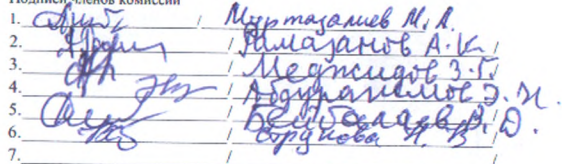 Подписи членов комиссии
1. / Муртазалиев М. А.
2. / Рамазанов А. К.
3. / Меджидов З. Г.
4. / Абдурагимов Э. И.
5. / Бейбалаев В. Д.
6. /
7. /